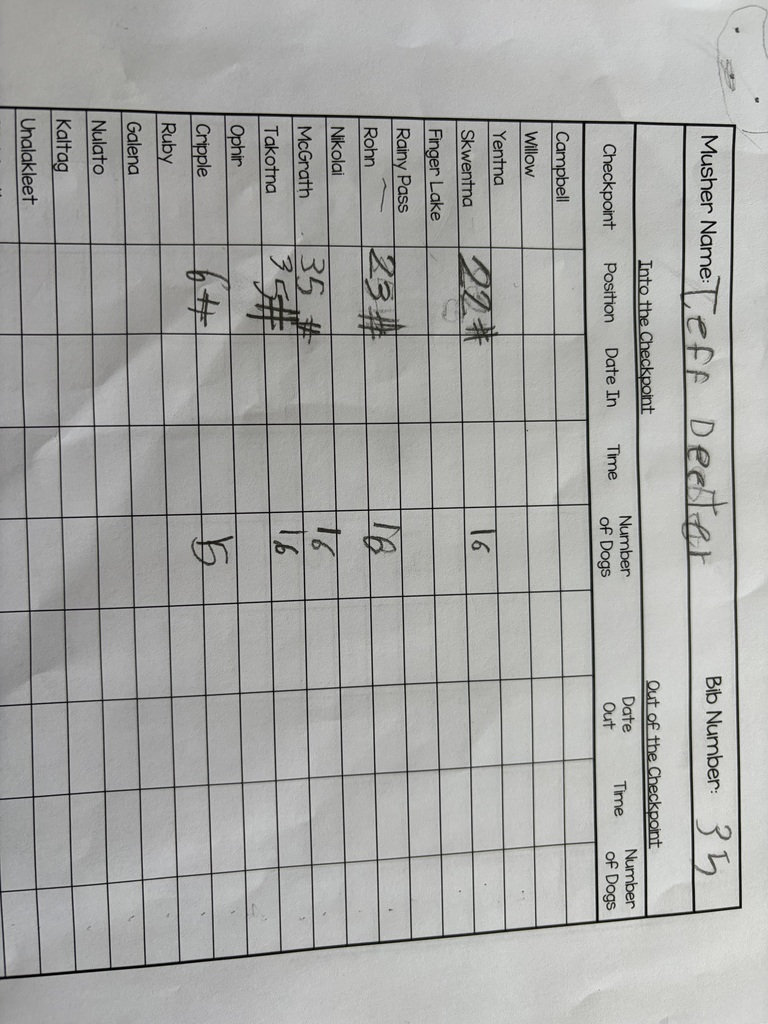 Musher Name: Jeff Deeter Bib Number: 35
Into the Checkpoint Out of the Checkpoint
Checkpoint Position Date In Time Number of Dogs Date Out Time Number of Dogs
Campbell
Willow
Yentna
Skwentna 22# 16
Finger Lake
Rainy Pass
Rohn 23# 16
Nikolai
McGrath 35# 16
Takotna 35# 16
Ophir
Cripple 6# 15
Ruby
Galena
Nulato
Kaltag
Unalakleet